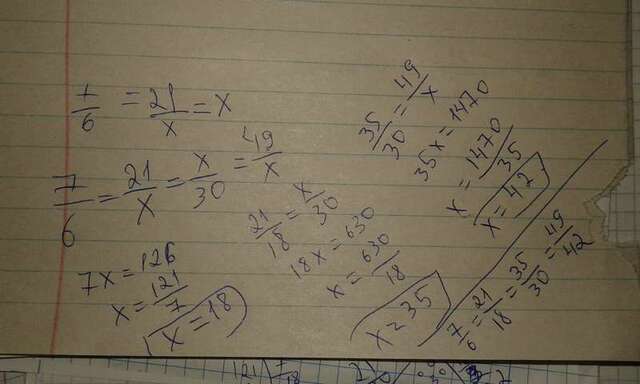 7/6 = 21/x = x
7/6 = 21/x = x/30 = 49/x
7x = 126
x = 121/7
x = 18
21/18 = x/30
18x = 630
x = 630/18
x = 35
35/30 = 49/x
35x = 1470
x = 1470/35
x = 42
7/6 = 21/18 = 35/30 = 49/42